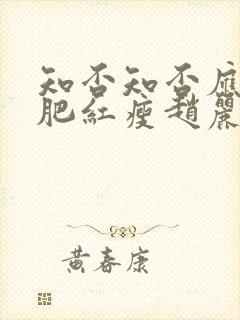 知否知否應
肥紅瘦趙麗
黃春康